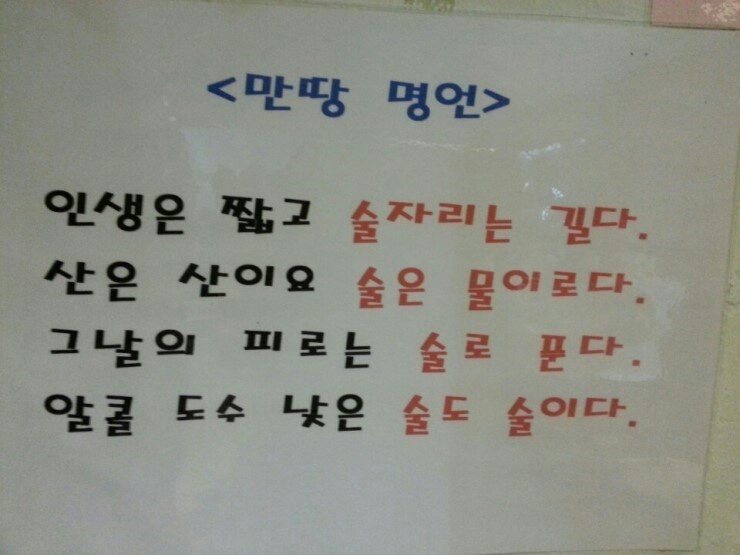 <만땅 명언>
인생은 짧고 술자리는 길다.
산은 산이요 술은 물이로다.
그날의 피로는 술로 푼다.
알콜 도수 낮은 술도 술이다.